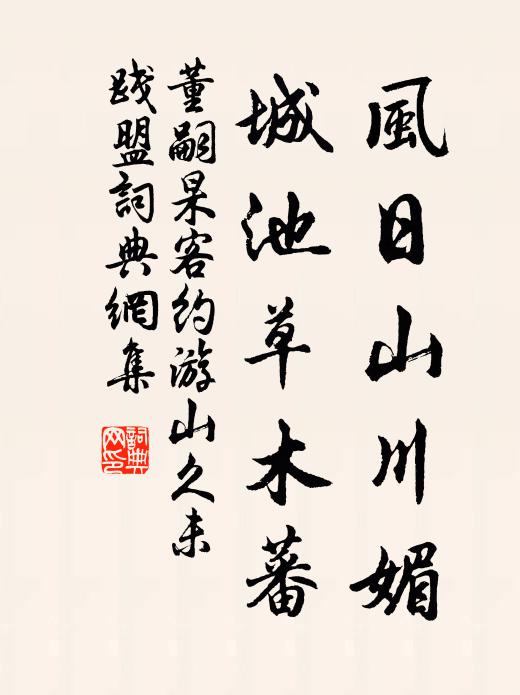 風日山川媚
城池草木蕃
董嗣杲客約游山久未
踐盟詞典網集
詞典
网印